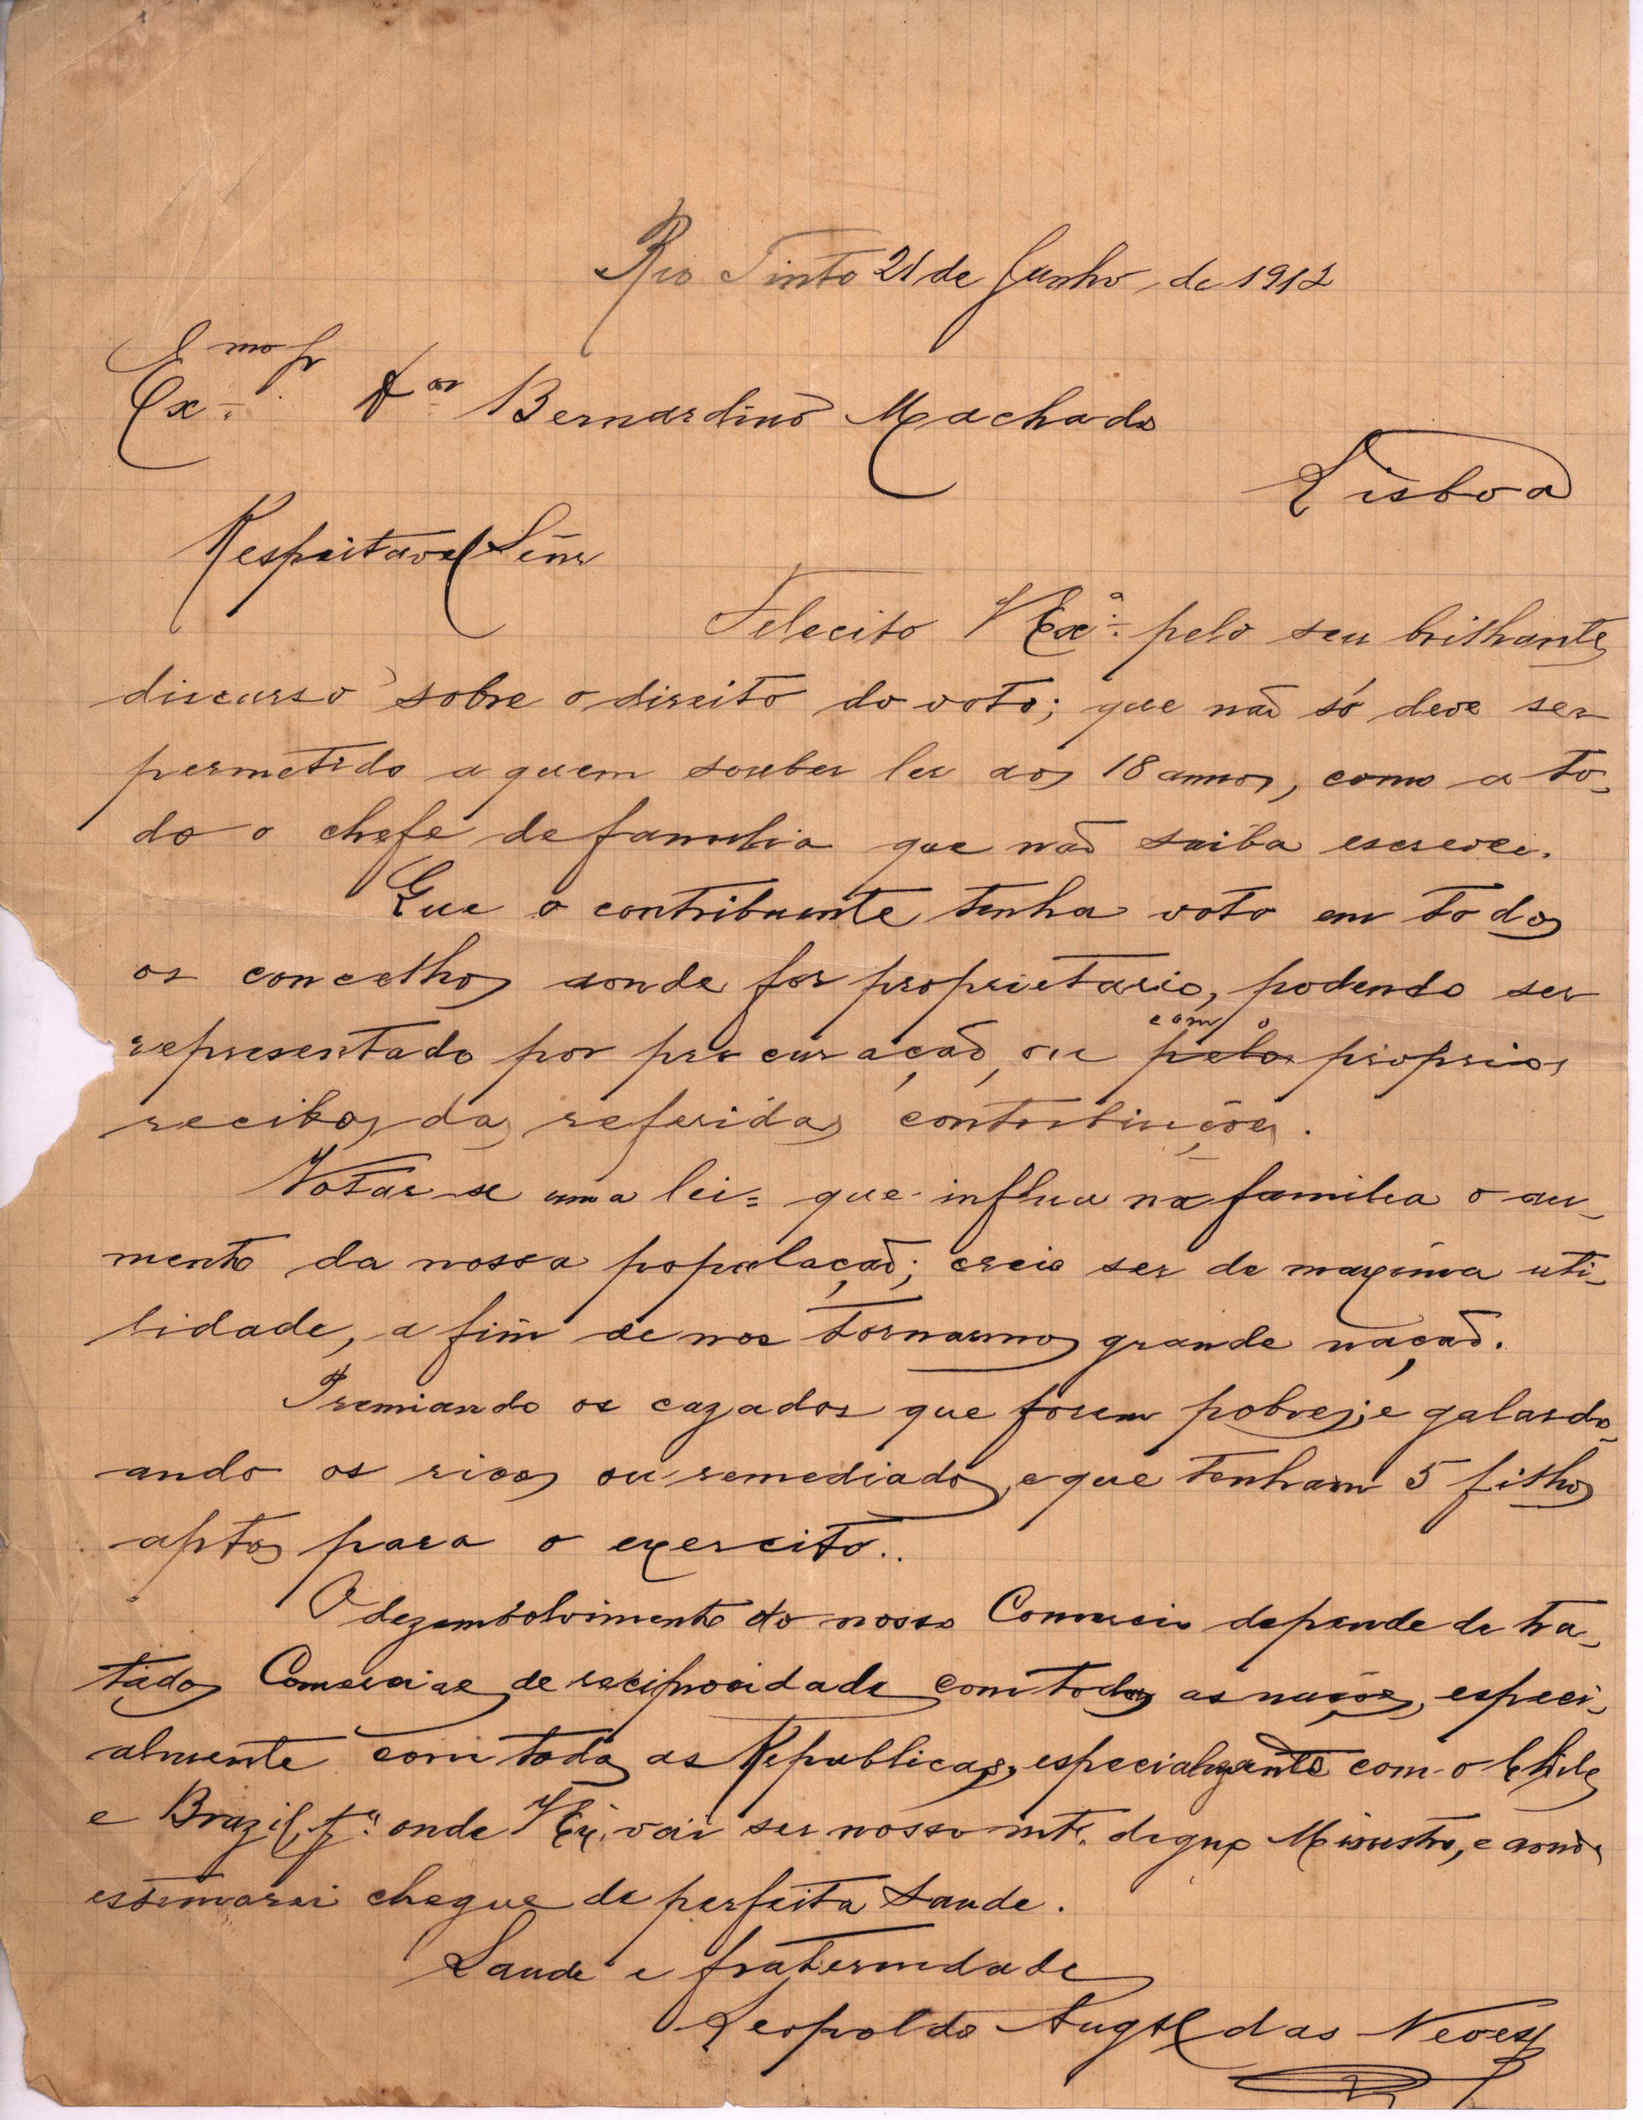 Rio Tinto 21 de Junho de 1912
Exmo Sr Dor Bernardino Machado
Lisboa
Respeitavel Senr
Felecito VExa. pelo seu brilhante
discurso sobre o direito do voto; que não só deve ser
permetido a quem souber ler aos 18 annos, como a to-
do o chefe de familia que não saiba escrever.
Que o contribuente tenha voto em todos
os concelhos aonde for proprietario, podendo ser
com o
representado por procuração, ou pelos proprios
recibos das referidas contribuições.
Votar se uma lei = que influa na familia o au-
mento da nossa população; creio ser de maxima uti-
lidade, a fim de nos tornarmos grande nação.
Premiando os cazados que forem pobres; e galardo-
ando os ricos ou remediados, e que tenham 5 filhos
aptos para o exercito..
O dezembolvimento do nosso Comercio depende de tra-
tados Comerciaes de reciprocidade com todas as nações, especi-
almente com todas as Republicas, especialmente com o Chile
e Brazil, pa. onde VEx. vai ser nosso mto. digno Ministro, e aonde
estimarei chegue de perfeita saude.
Saude e fraternidade
Leopoldo Augto das Neves